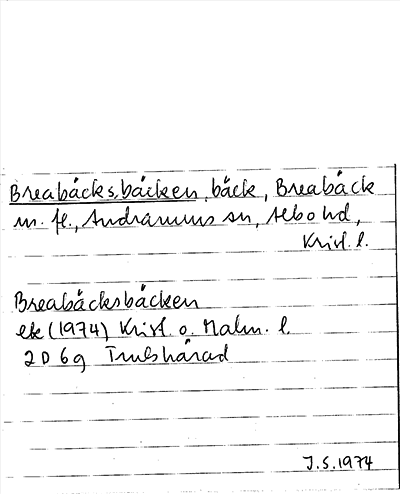 Breabäcksbäcken, bäck, Breabäck
m. fl., Andrarums sn, Albo hd,
Krist. l.
Breabäcksbäcken
ek (1974) Krist. o. Malm. l.
2 D 6g Trulshärad
J.S. 1974